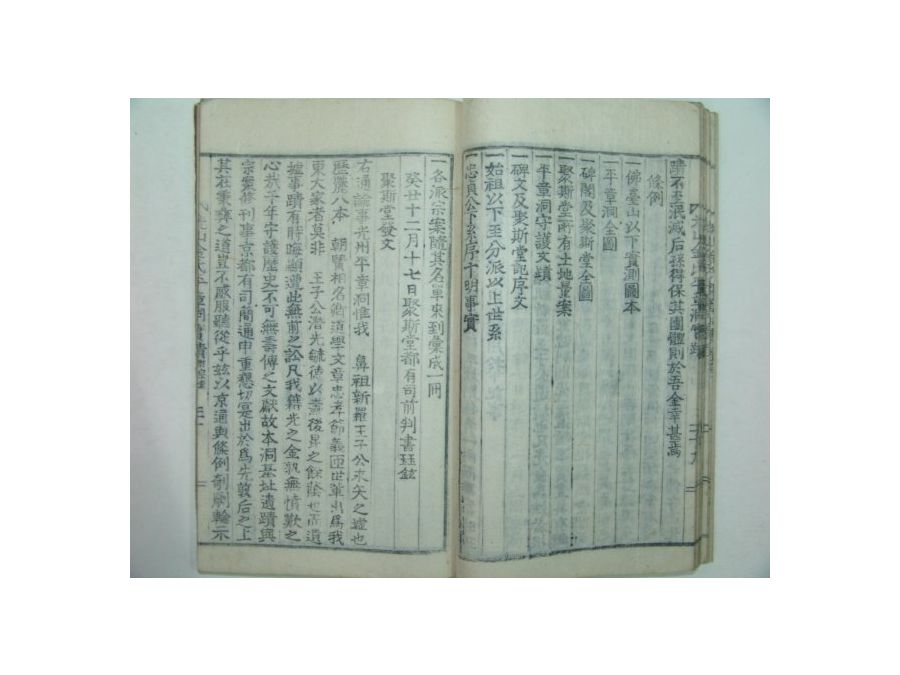 蹟不至泯滅后孫得保英團體則於吾金幸甚焉
條例
一佛臺山以下實測圖本
一平章洞全圖
一碑閣及聚斯堂全圖
一聚斯堂所有土地量案
一平章洞守護文蹟
一碑文及聚斯堂記序文
一始祖以下至分派以上世系
一忠貞公下系序十明事實
一各派宗案隨其名單來到彙成一冊
癸丑十二月十七日聚斯堂都有司前判書珏鉉
聚斯堂發文
右通諭事光州平章洞惟我 鼻祖新羅王子公未矣之墟也
歷麗八本 朝賢相名衛道學文章忠孝節義匝世輩出爲我
東大家者莫非 王子公潛光毓德以壽後昆之餘蔭也而遺
墟事蹟有時晦顯遭此無前之訟凡我籍光之金孰無憤歎之
心哉千年守護歷史不可無壽傳之文獻故本洞基址遺蹟與
宗案修刊事京都有司簡通申重懇切寔出於爲先敦后之上
其在秉彛之道豈不感服聽從乎玆以京通與條例剞劂輪示